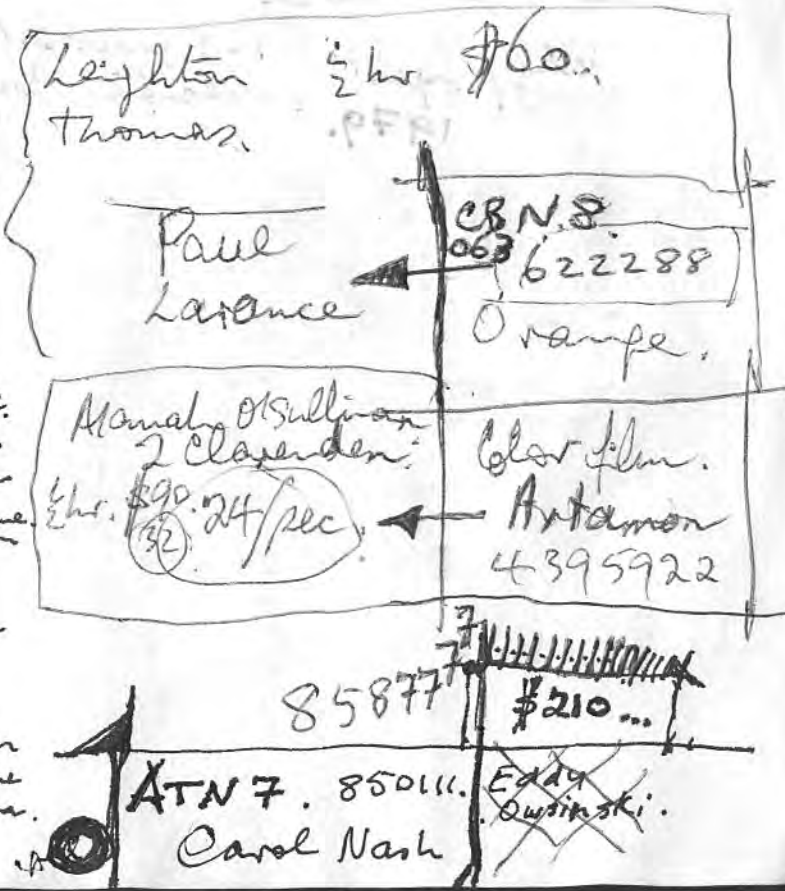 Leighton ½ hr $60..
Thomas.
CBN 8.
063 622288
Orange.
Paul
Larance
O'Sullivan
2 Clarenden.
½hr. $90. 24/sec.
32
Color film.
Artamon
4395922
858777
7
$210...
ATN 7. 850111.
Carol Nash
Eddy
Owsinski.